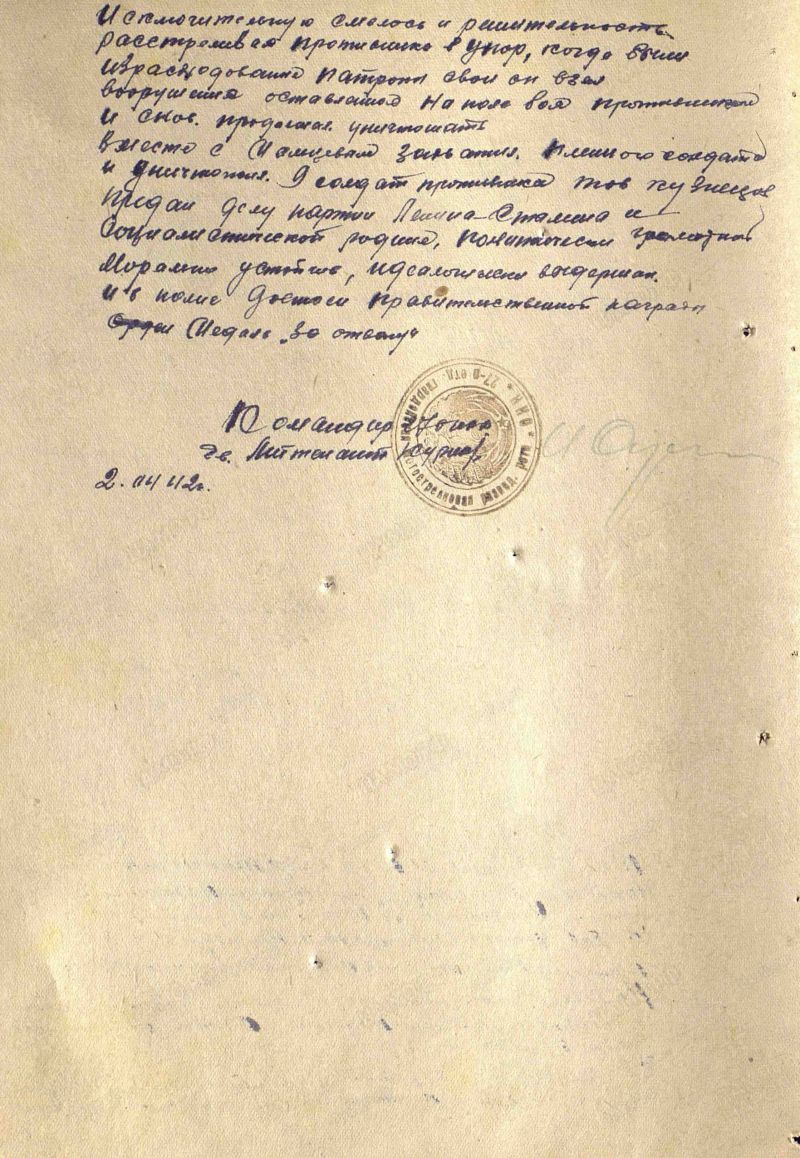 Исключительную смелось и решительность
расстреливая противника в упор, когда были
израсходование патроны свои он взял
вооружения оставленой на поле боя противником
и снов. продолжал уничтожать
Вместе с захватил пленного солдата
и уничтожил 9 солдат противника тов Кузнецов
предан делу партии Ленина Сталина и
Социалистической родине, политически грамотной
Морально устойчив, идеологически выдержан.
и в полне достоен правительственной награды
Орден Медаль "За отвагу"
Командир
Гв. Лейтенант
2.04 42г.
27-й отд. гвардейский развед. рота